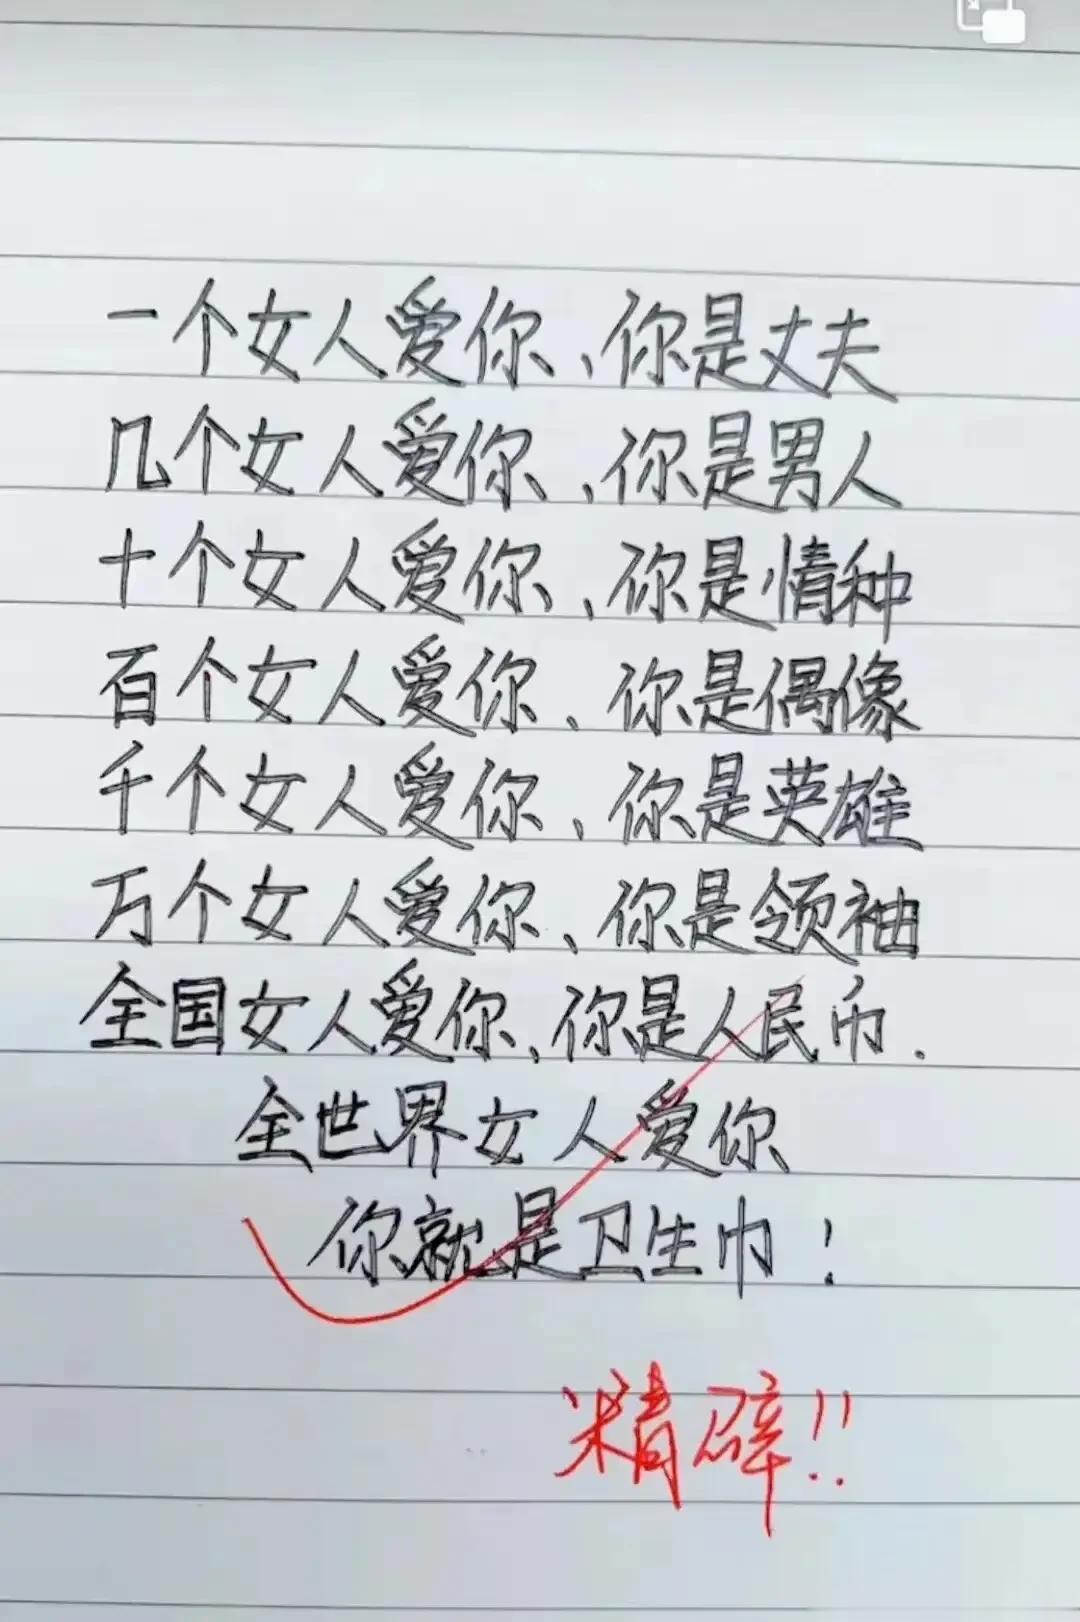 一个女人爱你、你是丈夫
几个女人爱你、你是男人
十个女人爱你、你是情种
百个女人爱你、你是偶像
千个女人爱你、你是英雄
万个女人爱你、你是领袖
全国女人爱你、你是人民币.
全世界女人爱你
你就是卫生巾!
精辟!!